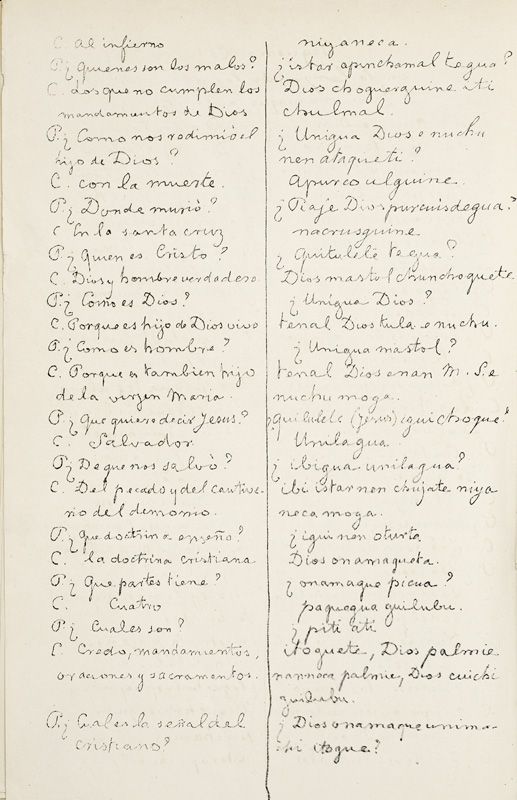 C. Al infierno
P. ¿Quienes son los malos?
C. Los que no cumplen los
mandamientos de Dios
P. ¿Como nos redimió el
hijo de Dios?
C. con la muerte.
P. ¿Donde murió?
C En la santa cruz
P. ¿Quien es Cristo?
C. Dios y hombre verdadero.
P. ¿Como es Dios?
C. Porque es hijo de Dios vivo
P. ¿Como es hombre?
C. Porque es tambien hijo
de la virgen Maria.
P. ¿Que quiere decir Jesus?
C. Salvador
P. ¿De que nos salvò?
C. Del pecado y del cautive-
rio del demonio.
P. ¿Que doctrina enseño?
C. la doctrina cristiana
P. ¿Que partes tiene?
C. Cuatro
P. ¿Cuales son?
C. Credo, mandamientos,
oraciones y sacramentos.
P. ¿Cual es la señal del
cristiano?
niyaneca.
¿istar apinchamal te gua?
Dios choguerguine ati
chulmal.
¿Unigua Dios e nuchu
nen ataqueti?
apurco ulguine.
¿Piaje Dios purcuisdegua?
nacrusguine.
¿Quitulele te gua?
Dios mastol chunchoguete
¿Unigua Dios?
tenal Dios tula e nuchu.
¿Unigua mastol?
tenal Dios enan M. S. e
nuchu moga.
¿quilulele (Jesus) iguichogue?
Unilagua.
¿ibigua unilagua?
ibi istar nen chujate niya
neca moga.
¿igui nen oturta
Dios onamaqueta.
¿onamaque picua?
paquegua guilubu.
¿piti ati
itoguete, Dios palmie
nanneca palmie, Dios cuichi
guilubu.
¿Dios onamaque unima-
chi itogue?